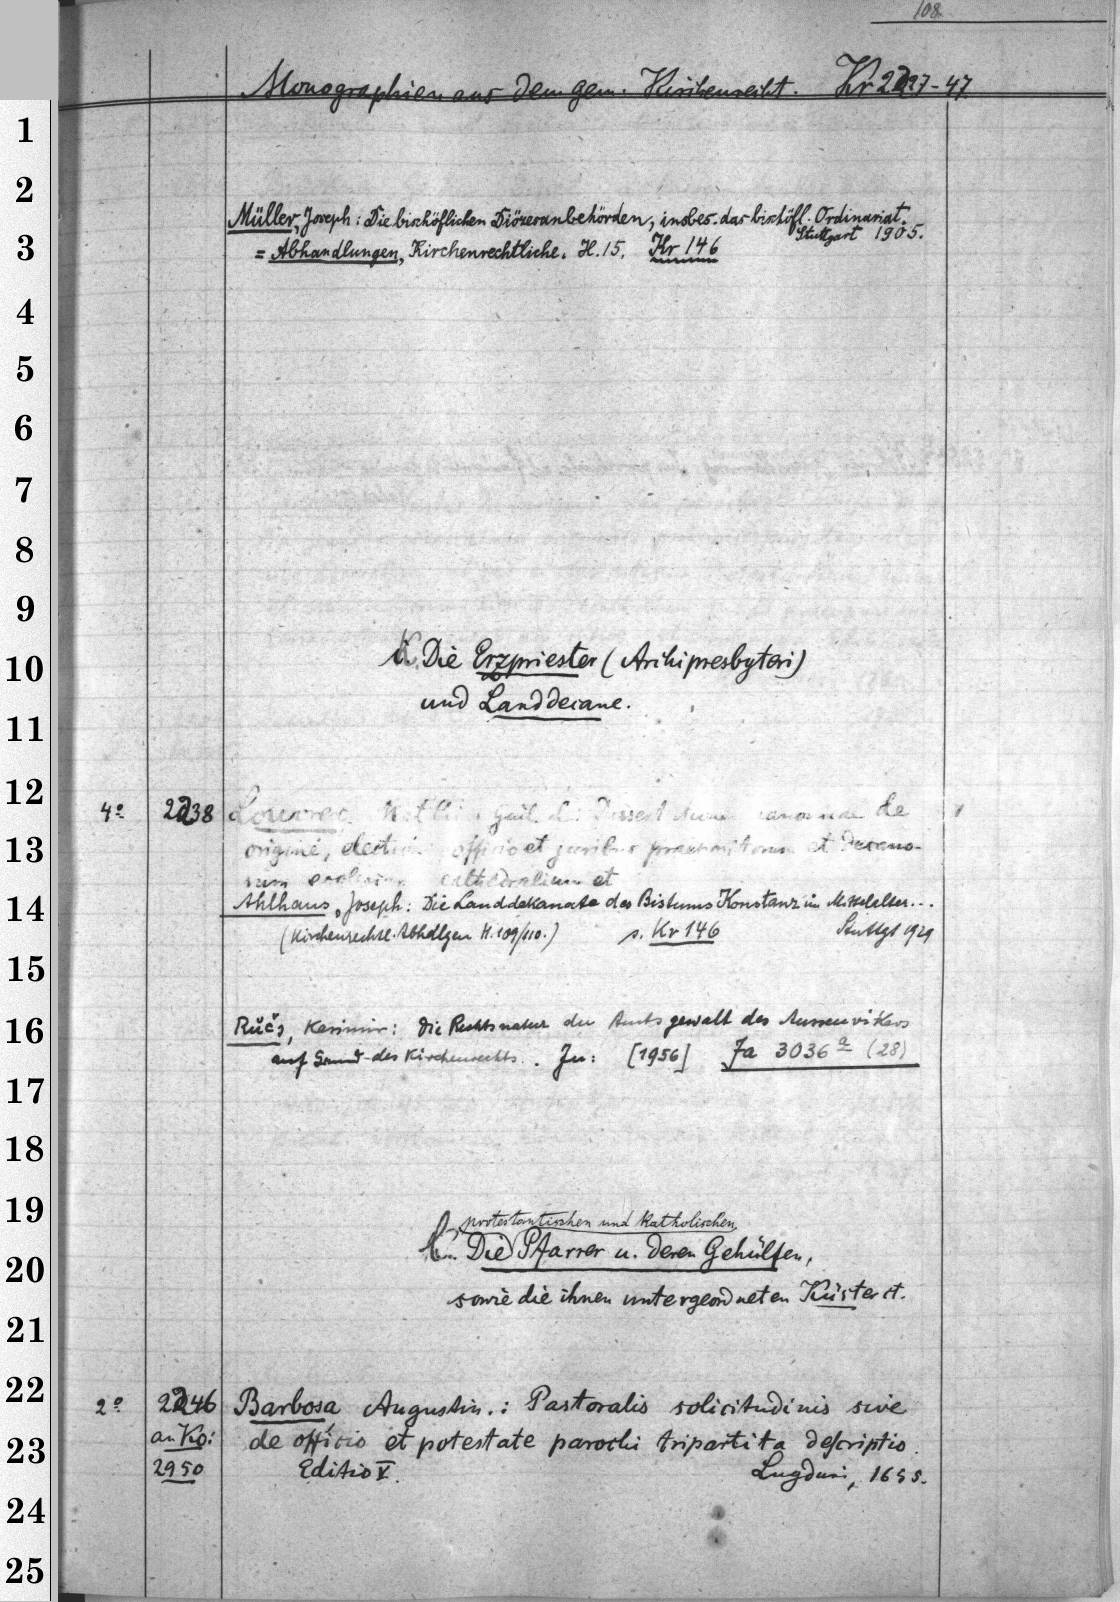 108
Monographien aus dem gem. Kirchenrecht. Kr 2227-47
1
2
Müller, Joseph: Die bischöflichen Diözesanbehörden, insbes. das bischöfl. Ordinariat.
Stuttgart 1905.
3
= Abhandlungen, Kirchenrechtliche. H. 15. Kr 146
4
5
6
7
8
9
10
K. Die Erzpriester (Archipresbyteri)
und Landdecane.
11
12
4o 2238 Louvrex de
13
origine, electione officio et juribus praepositorum et decano-
rum cathedralium et
14
Ahlhaus, Joseph: Die Landdekanate des Bistums Konstanz im Mittelalter...
(Kirchenrechtl. Abhdlgen H. 109/110.) s. Kr 146 Stuttgt 1929
15
16
Kasimir: Die Rechtsnatur der Amtsgewalt des Aussenvikars
auf Grund des Kirchenrechts. . In: [1956] Ja 3036 a (28)
17
18
19
protestantischen und katholischen
20
Die Pfarrer u. deren Gehülfen,
sowie die ihnen untergeordneten Küster et.
21
22
2o 2246 Barbosa Augustin.: Pastoralis solicitudinis sive
an Ko: de officio et potestate parochi tripartita descriptio.
23
2950 Editio V. Lugduni, 1655.
24
25